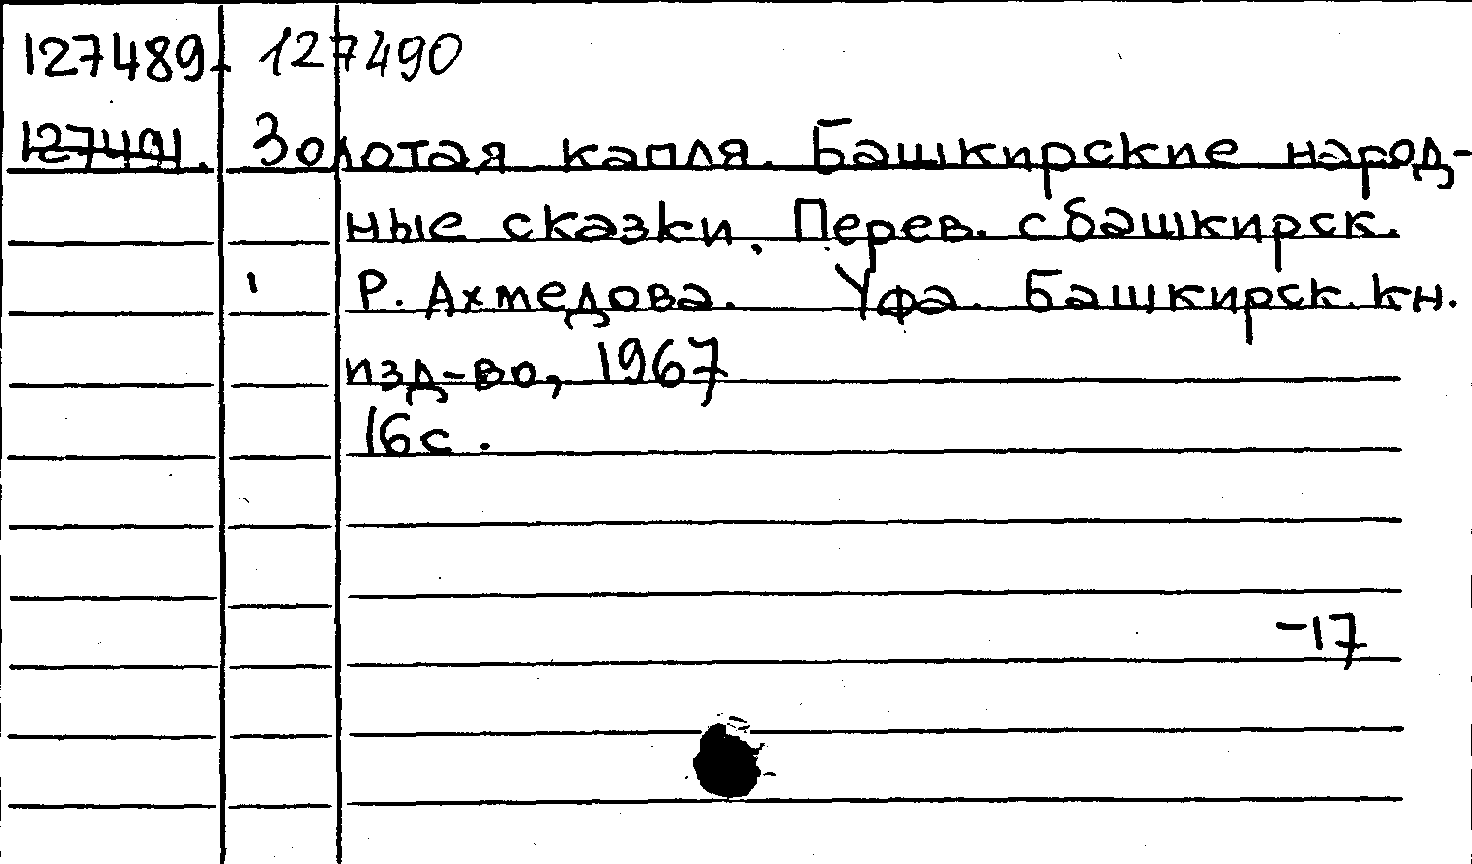 127489- 127490
127491. Золотая капля. Башкирские народ-
ные сказки. Перев. с башкирск.
Р. Ахмедова. Уфа. Башкирск. кн.
изд-во, 1967
16с.
-17